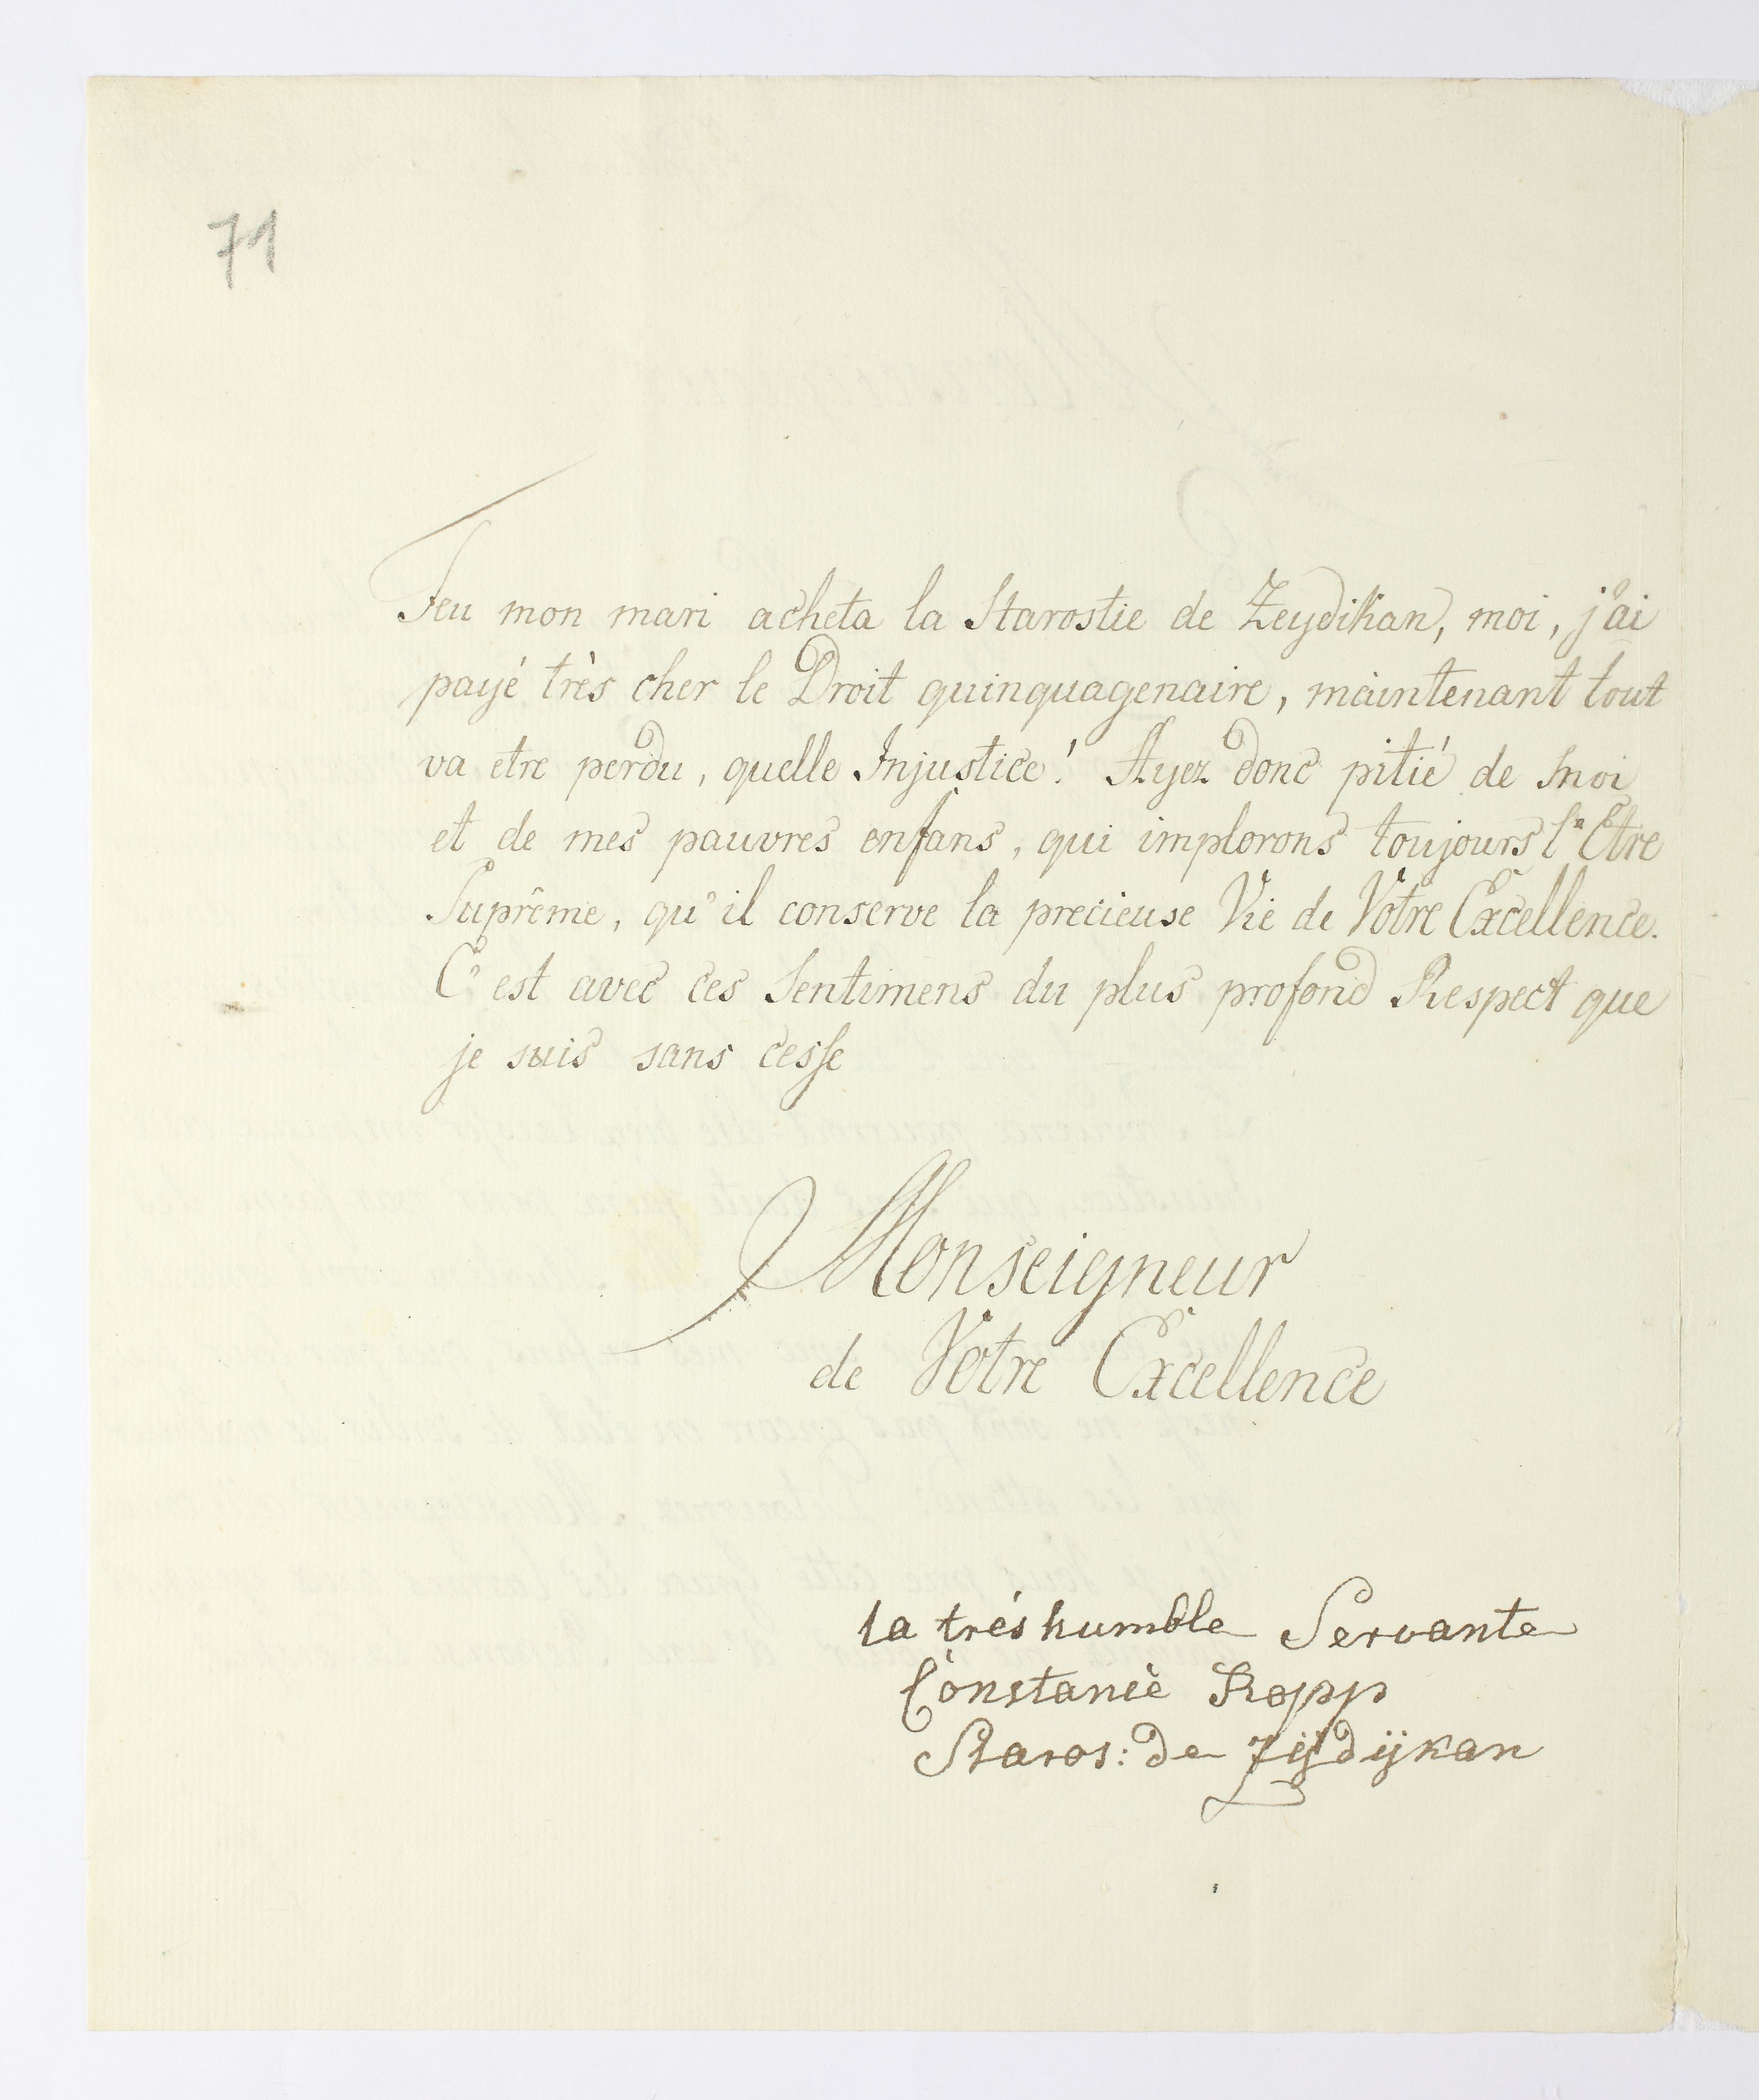 71
Feu mon mari acheta la Starostie de Zeydikan, moi, j'ai
payé très cher le Droit quinquagenaire, maintenant tout
va etre perdu, quelle Injustice! Ayez donc pitié de moi
et de mes pauvres enfans, qui implorons toujours l'Etre
Suprême, qu'il conserve la precieuse Vie de Votre Excellence.
C'est avec ces Sentimens du plus profond Respect que
je suis sans cesse
Monseigneur
de Votre Excellence
la trés humble Servante
Constancè Kopp
Staros: de Zeÿdÿkan